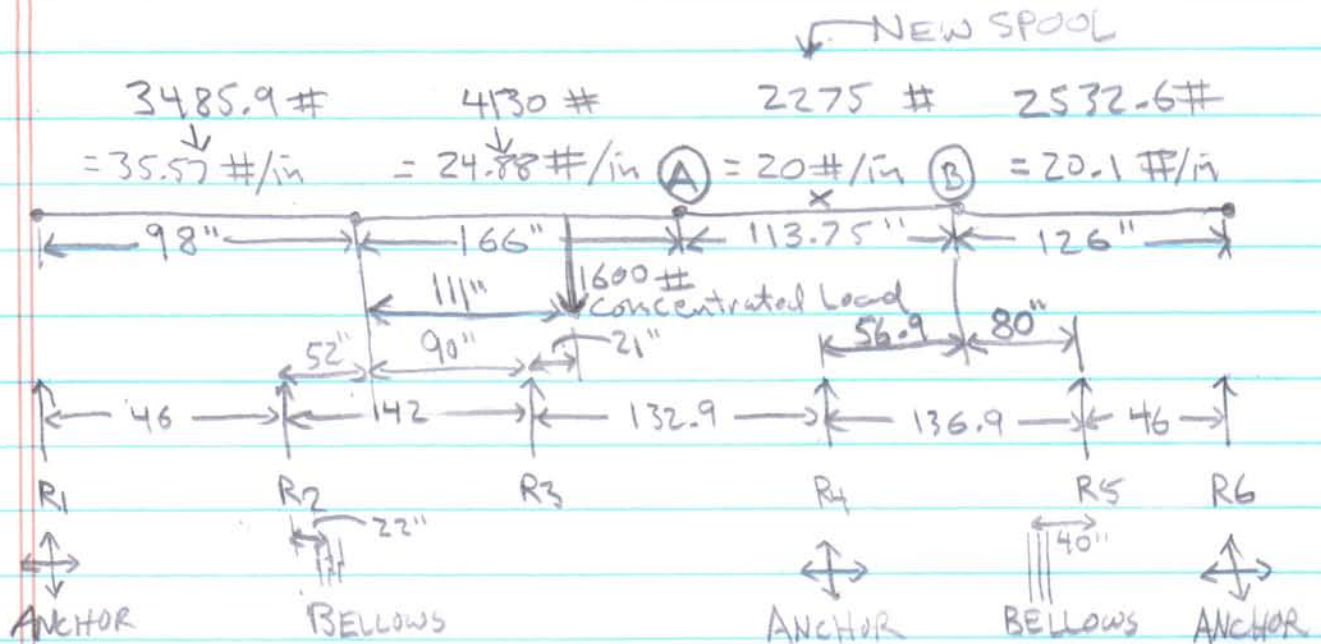 NEW SPOOL
3485.9 # 4130 # 2275 # 2532.6#
=35.57 #/in = 24.88 #/in A = 20 #/in B = 20.1 #/in
x
98" 166" 113.75" 126"
111" 1600 #
Concentrated Load
52" 90" 21" 56.9 80"
46 142 132.9 136.9 46
R1 R2 R3 R4 R5 R6
22" 40"
ANCHOR BELLOWS ANCHOR BELLOWS ANCHOR